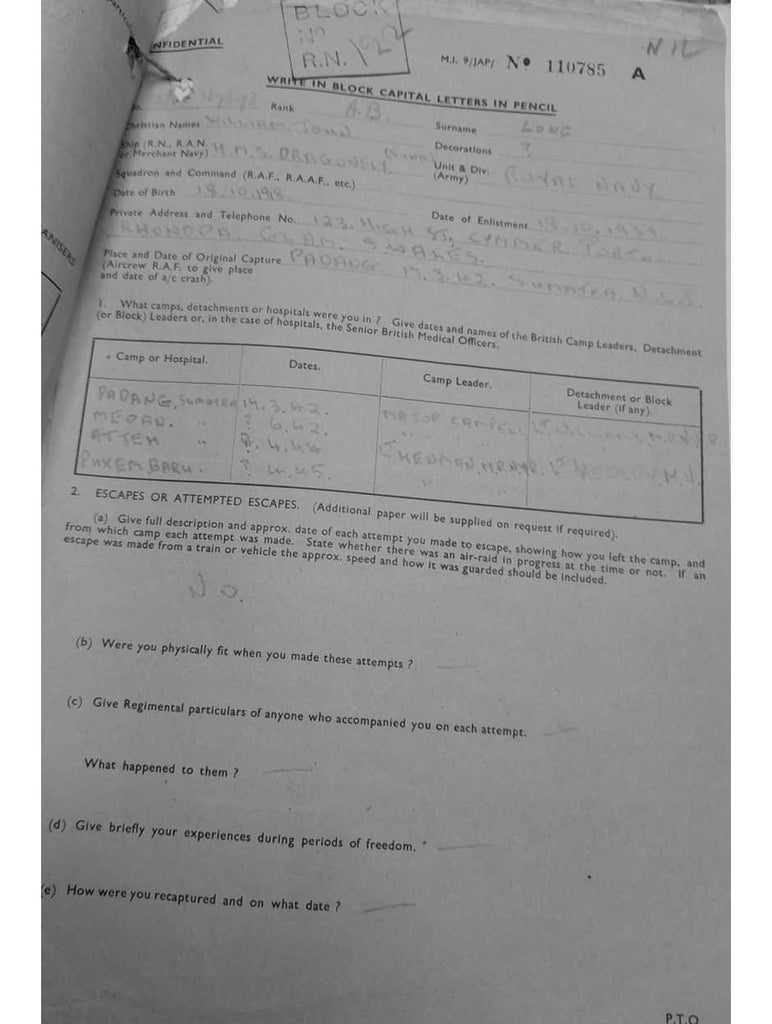 BLOCK
Nº
R.N. 1922
NIL
NFIDENTIAL
M.I. 9/JAP/ Nº 110785 A
WRITE IN BLOCK CAPITAL LETTERS IN PENCIL
Rank A.B.
Surname LONG
Christian Names WILLIAM JOHN
Decorations ?
Ship (R.N., R.A.N. or Merchant Navy) H.M.S. DRAGONFLY
Unit & Div. (Army) ROYAL NAVY
Squadron and Command (R.A.F., R.A.A.F., etc.)
Date of Birth 18.10.1918.
Date of Enlistment 18.10.193
Private Address and Telephone No. 123, HIGH ST, CYMMER PORTH
RHONDDA. GLAM. S. WALES.
Place and Date of Original Capture PADANG 17.3.42. SUMATRA, N.E.I.
(Aircrew R.A.F. to give place
and date of a/c crash).
ANISERS
1. What camps, detachments or hospitals were you in ? Give dates and names of the British Camp Leaders, Detachment
(or Block) Leaders or, in the case of hospitals, the Senior British Medical Officers.
Camp or Hospital. Dates. Camp Leader. Detachment or Block Leader (if any).
PADANG, SUMATRA 17.3.42. MAJOR CAMPELL LT WILLIAMS
MEDAN. " ? 6.42. " "
ATJEH " ?. 4.44 LT HENMAN, M.R.N.V.R.
" ? 4.45. "
2. ESCAPES OR ATTEMPTED ESCAPES. (Additional paper will be supplied on request if required).
(a) Give full description and approx. date of each attempt you made to escape, showing how you left the camp, and
from which camp each attempt was made. State whether there was an air-raid in progress at the time or not. If an
escape was made from a train or vehicle the approx. speed and how it was guarded should be included.
No.
(b) Were you physically fit when you made these attempts ?
(c) Give Regimental particulars of anyone who accompanied you on each attempt.
What happened to them ?
(d) Give briefly your experiences during periods of freedom.
(e) How were you recaptured and on what date ?
P.T.O